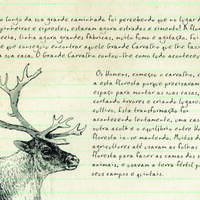 ao longo da sua grande caminhada foi percebendo que no lugar d
pinheiros e ciprestes, estavam agora estradas e cimento! A flor
cia, tinha agora grandes fábricas, muito fumo e agitação, foi
que conseguiu encontrar aquele Grande Carvalho que lhe fal
a sua casa. O Grande Carvalho contou-lhe como tudo acontece
Os Homens, começou o carvalho,
a esta floresta porque precisavam
espaço para montar as suas casas,
cortando árvores e criando lugares
cultivo. Esta transformação foi
acontecendo lentamente, uma cas
outra acolá e o equilíbrio entre Ho
floresta ia-se mantendo. Muitos do
agricultores até usavam as folhas
floresta para fazer as camas dos s
animais, e usavam a terra fértil pa
seus campos e quintais.